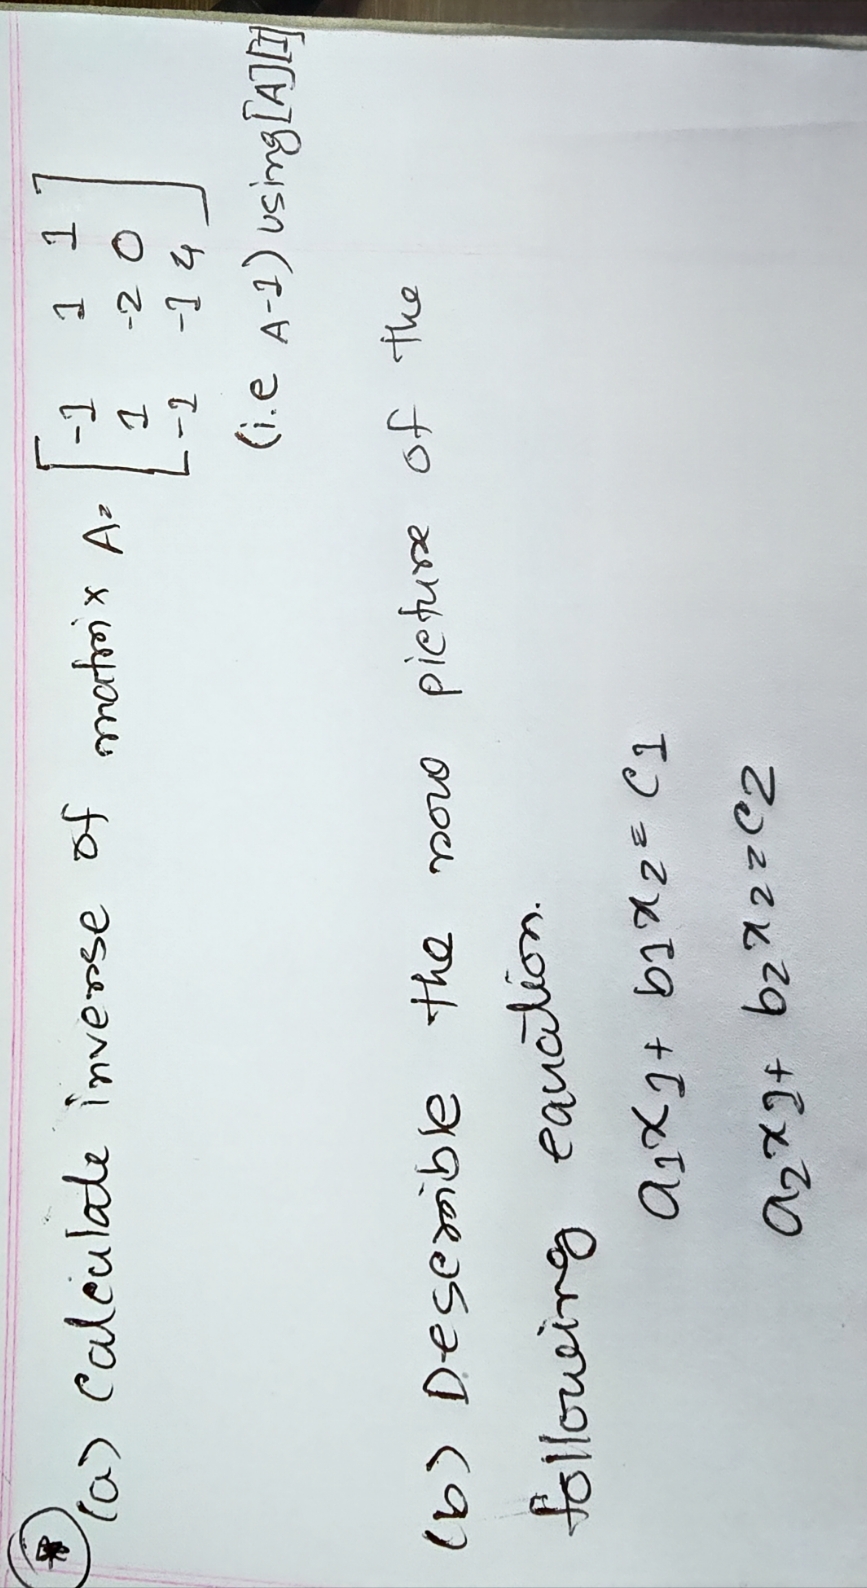 (a) Calculate inverse of matrix A= [ -1 1 1
1 -2 0
-1 -1 4 ]
(i.e A-1) using [A][I]
(b) Describle the row picture of the
following equation.
a1x1+ b1x2 = c1
a2x1+ b2x2 = c2